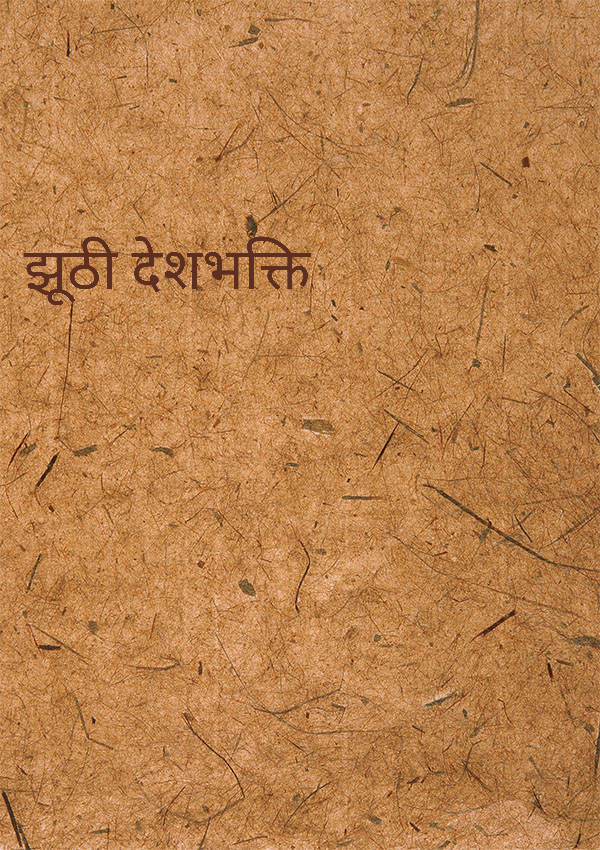 झूठी देशभक्ति